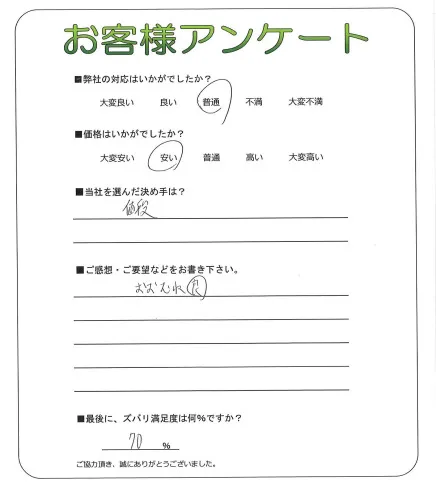 お客様アンケート
■弊社の対応はいかがでしたか?
大変良い 良い 普通 不満 大変不満
■価格はいかがでしたか?
大変安い 安い 普通 高い 大変高い
■当社を選んだ決め手は?
値段
■ご感想・ご要望などをお書き下さい。
おおむね良
■最後に、ズバリ満足度は何%ですか?
70 %
ご協力頂き、誠にありがとうございました。